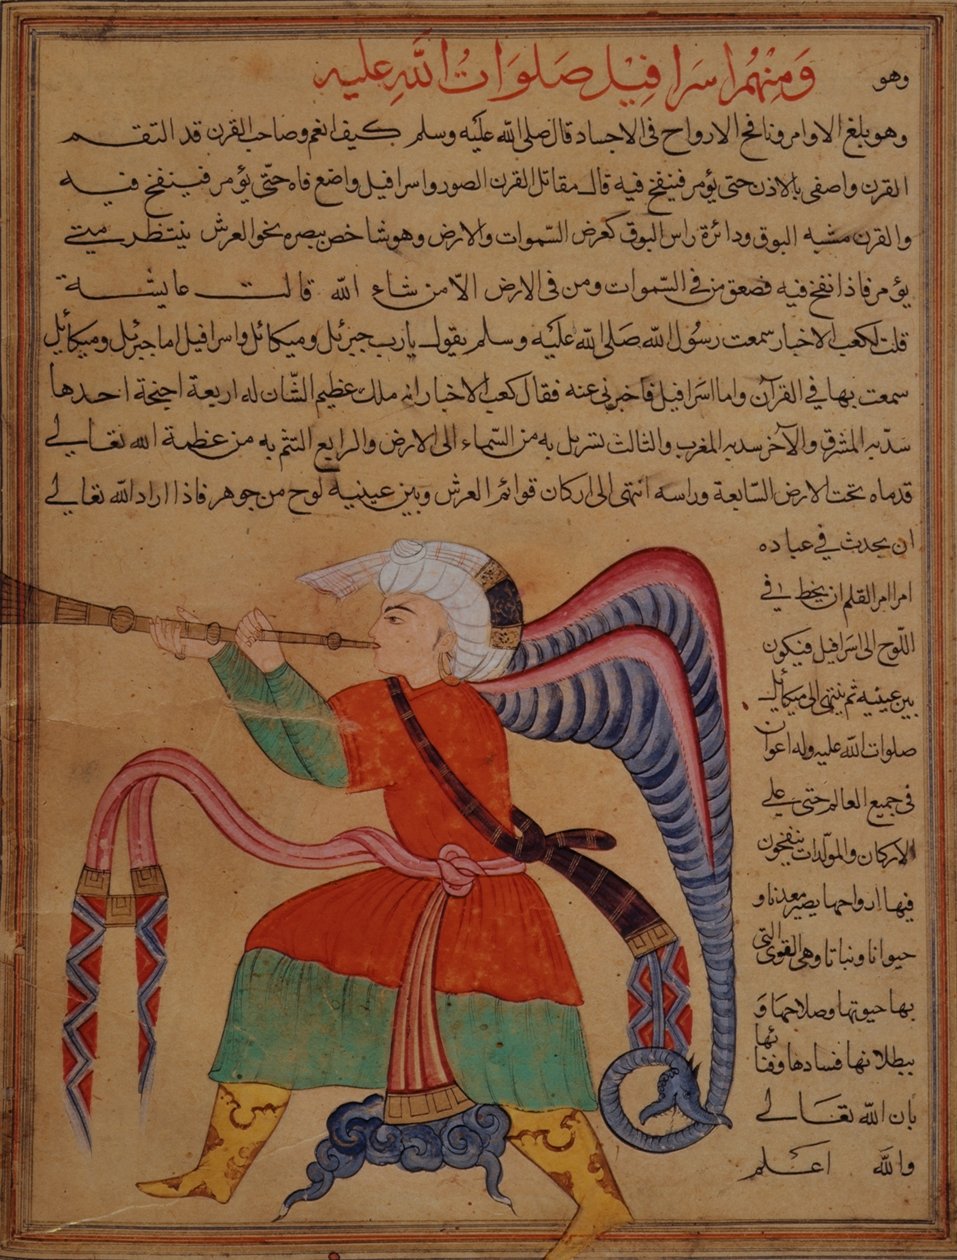 ومنهم اسرافيل صلوات الله عليه
وهو
وهو يبلغ الاوامر ونافخ الارواح فى الاجساد قال صلى الله عليه وسلم كيف انعم وصاحب القرن قد التقم
القرن واصغى بالاذن حتى يؤمر فينفخ فيه قال مقاتل القرن الصور واسرافيل واضع فاه حتى يؤمر فينفخ فيه
والقرن مشبه البوق ودائرة راس البوق كعرض السموات والارض وهو شاخص ببصره نحو العرش ينتظر متى
يؤمر فاذا نفخ فيه فصعق من فى السموات ومن فى الارض الا من شاء الله قالت عايشة
قلت لكعب الاخبار سمعت رسول الله صلى الله عليه وسلم يقول يارب جبرئل وميكائل واسرافيل اما جبرئل وميكائل
سمعت بها فى القرآن واما اسرافيل فاخبرنى عنه فقال كعب الاخبار انه ملك عظيم الشان له اربعة اجنحة احدها
سد به المشرق والآخر سد به المغرب والثالث تسربل به من السماء الى الارض والرابع التثم به من عظمة الله تعالى
قدماه تحت الارض السابعة وراسه انتهى الى اركان قوائم العرش وبين عينيه لوح من جوهر فاذا اراد الله تعالى
ان يحدث فى عباده
امرا امر القلم ان يخط فى
اللوح الى اسرافيل فيكون
بين عينيه ثم ينتهى الى ميكائل
صلوات الله عليه وله اعوان
فى جميع العالم حتى على
الاركان والمولدات ينفخون
فيها ارواحها يصير معدنا و
حيوانا ونباتا وهى القوى التى
بها حيوتها وصلاحها و
ببطلانها فسادها وفنائها
بان الله تعالى
والله اعلم